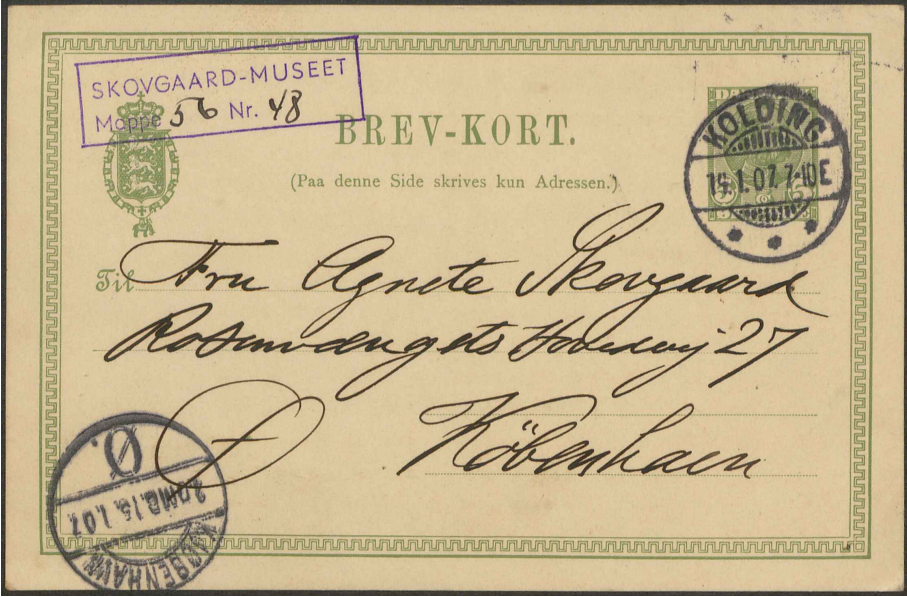 SKOVGAARD-MUSEET
Mappe 56 Nr. 48
BREV-KORT.
(Paa denne Side skrives kun Adressen.)
KOLDING
1.07. 7-10E
Til Fru Agnete Skovgaard
Rosenvængets Hovedvej 27
Ø
København
Ø.
2.OMB. 15. 1. 07
KJØBENHAVN